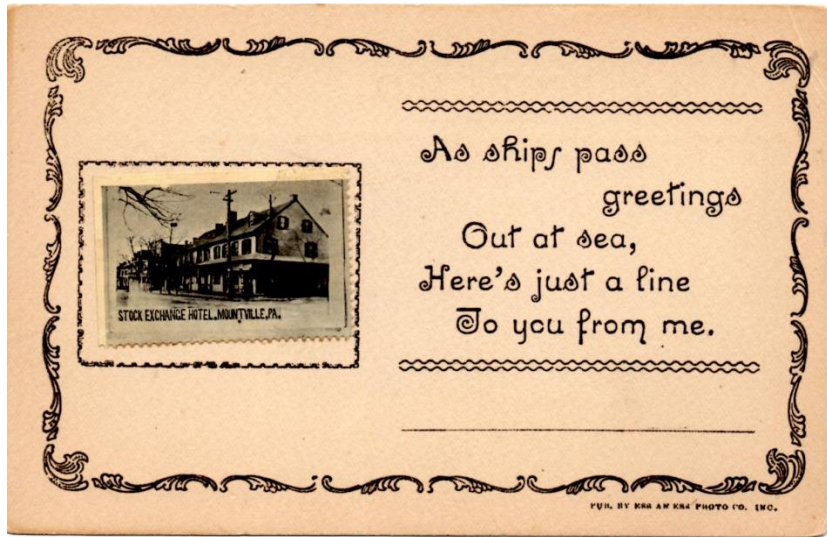 STOCK EXCHANGE HOTEL, MOUNTVILLE, PA.
As ships pass
greetings
Out at sea,
Here's just a line
To you from me.
PUB. BY ESS AN ESS PHOTO CO. INC.